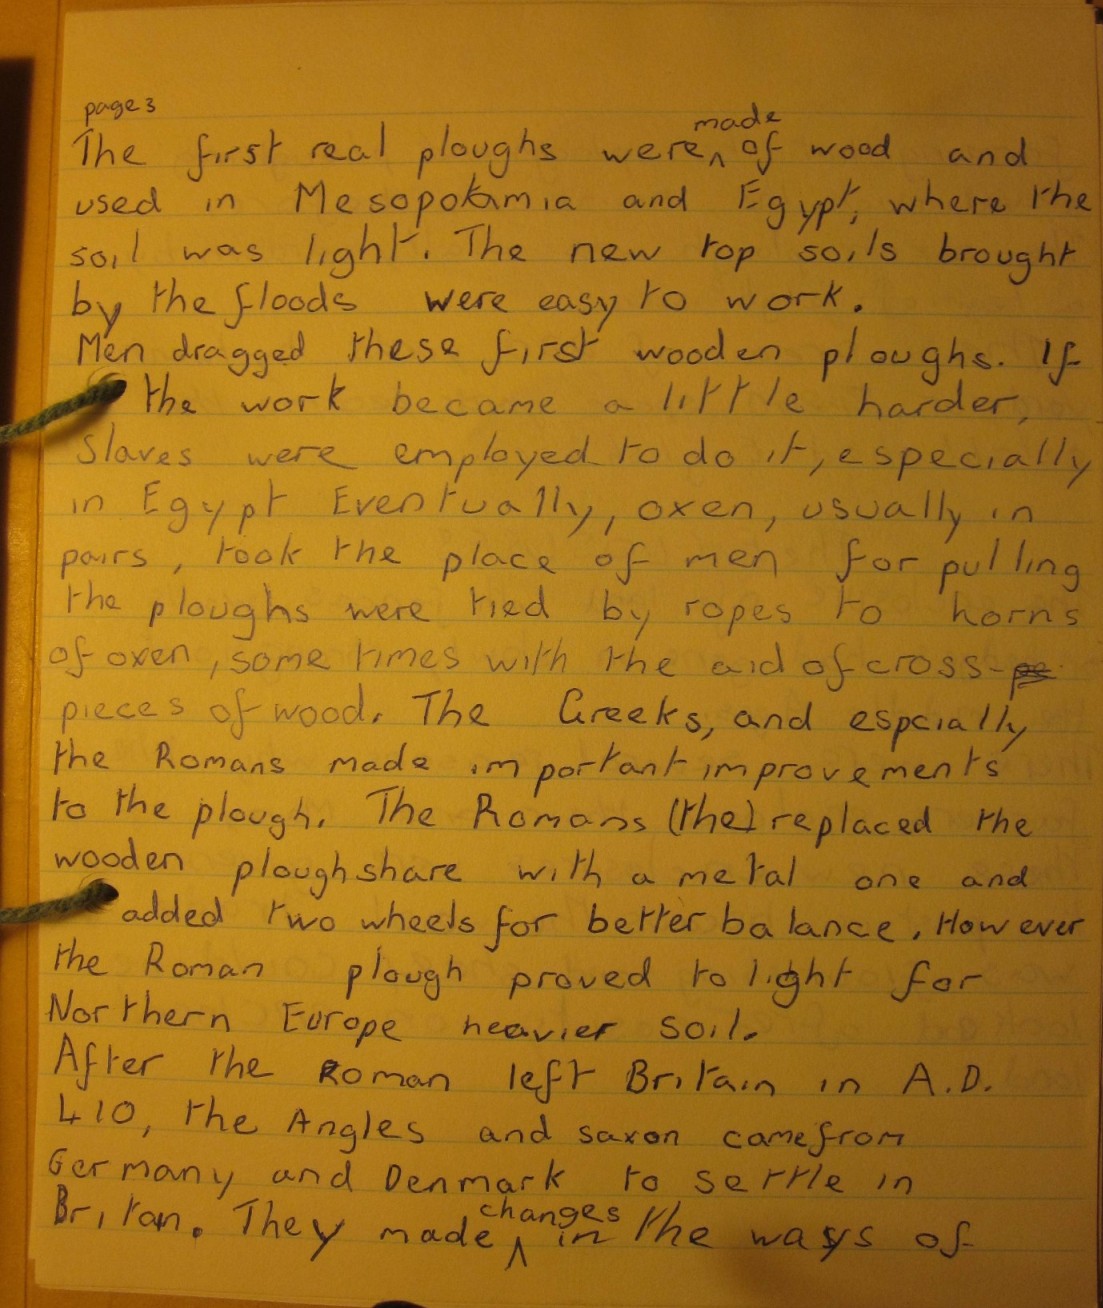 page 3
The first real ploughs were, made of wood and
used in Mesopotamia and Egypt, where the
soil was light. The new top soils brought
by the floods were easy to work.
Men dragged these first wooden ploughs. If
the work became a little harder,
slaves were employed to do it, especially
in Egypt Eventually, oxen, usually in
pairs, took the place of men for pulling
the ploughs were tied by ropes to horns
of oxen, some times with the aid of cross-
pieces of wood. The Greeks, and espcially
the Romans made important improvements
to the plough. The Romans (the) replaced the
wooden ploughshare with a metal one and
added two wheels for better balance. However
the Roman plough proved to light for
Northern Europe heavier soil.
After the Roman left Britain in A.D.
410, the Angles and saxon came from
Germany and Denmark to settle in
Britan. They made changes in the ways of